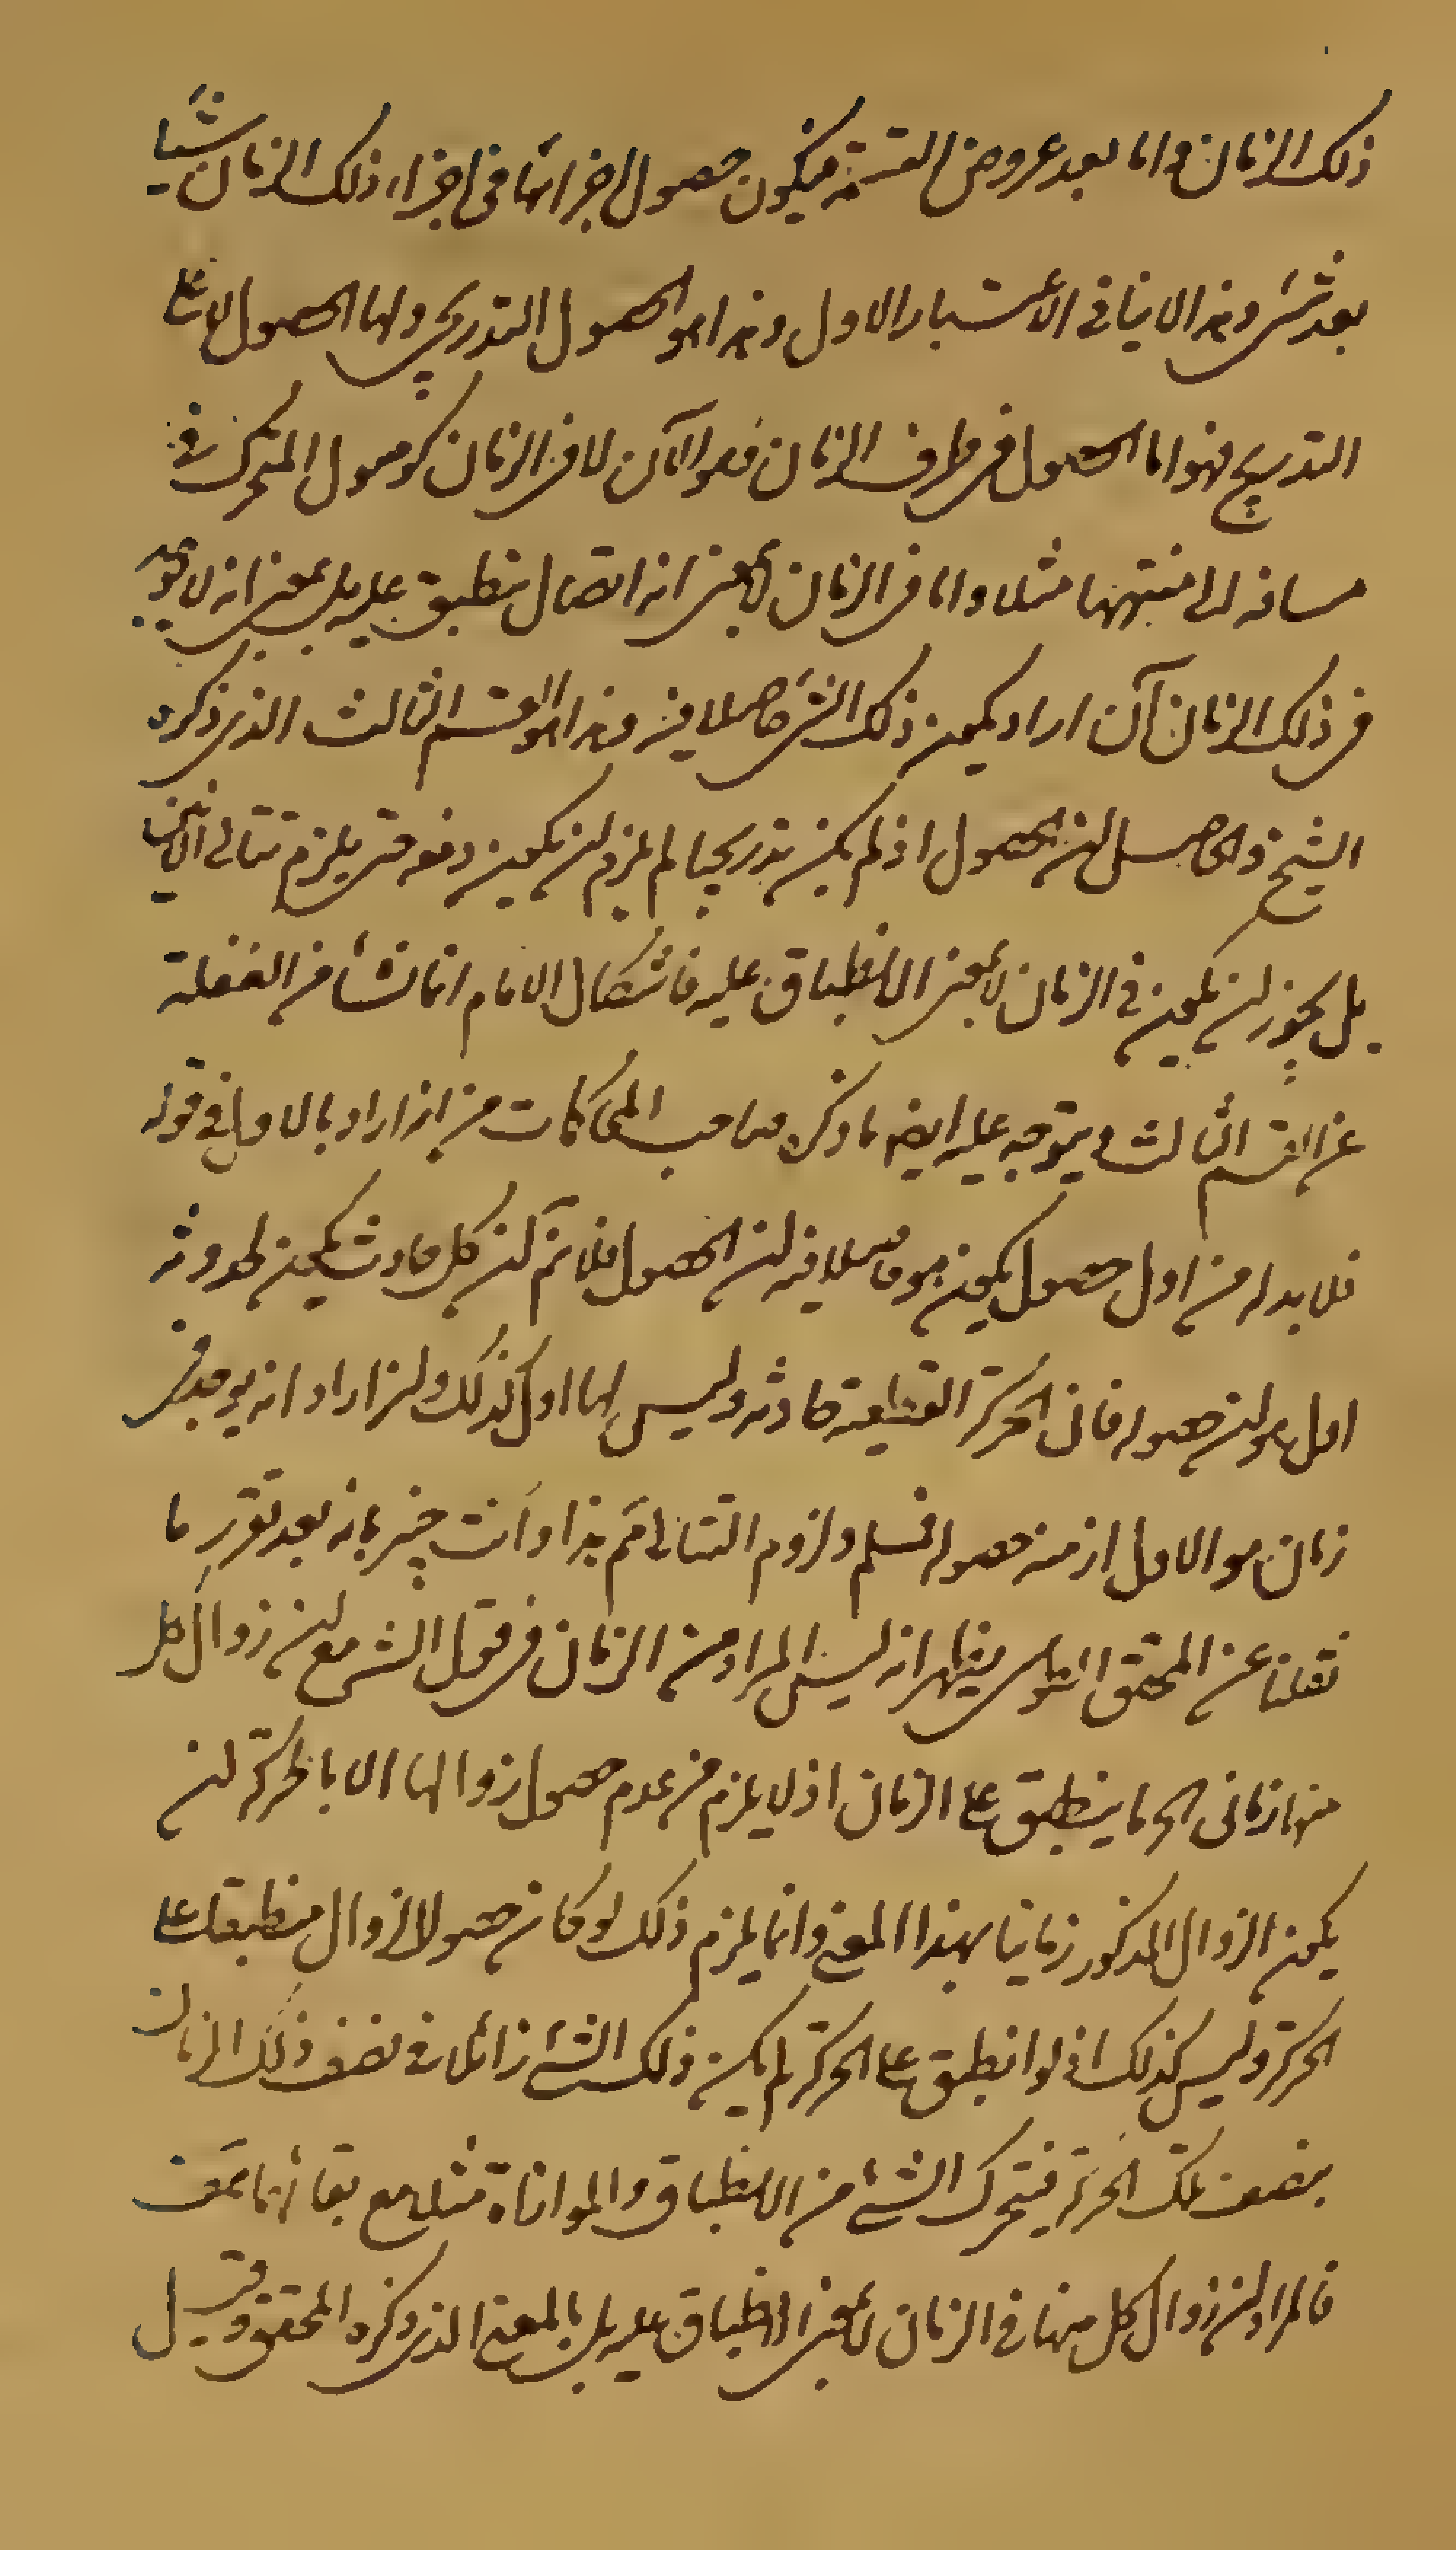 ذلك الزمان واما بعد عروض القسمة فيكون حصول اجزائها فى اجزاء ذلك الزمان شيئا
بعد شئ وهذا لا ينافى الاعتبار الاول وهذا هو الحصول التدريجى واما الحصول لا على
التدريج فهو اما الحصول فى طرف الزمان وهو الآن لا فى الزمان كوصول المتحرك فى
مسافة الى منتهاها مثلا واما فى الزمان لا بمعنى انه اتصال منطبق عليه بل بمعنى انه لا يوجد
فى ذلك الزمان آن اراد يكون ذلك الشئ حاصلا فيه وهذا هو القسم الثالث الذى ذكره
الشيخ والحاصل ان الحصول اذ لم يكن تدريجيا لم يلزم ان يكون دفعة حتى يلزم تتالى الآنين
بل يجوز ان يكون فى الزمان لا بمعنى الانطباق عليه فاشكال الامام انما نشا من الغفلة
عن القسم الثالث ويتوجه عليه ايضا ما ذكره صاحب المحاكمات من انه اراد بالاول فى قوله
فلا بد له من اول حصول يكون هو حاصلا فيه ان الحصول فلا نم ان كل حادث يكون لحدوثه
اول هو ان حصوله فان الحركة القطعية حادثة وليس لها اول كذلك وان اراد انه يوجد فى
زمان هو الاول ازمنة حصوله فمسلم ولزوم التتالى مم هذا وانت خبير بانه بعد تقرير ما
نقلنا عن المحقق الطوسى يظهر انه ليس المراد من الزمان فى قول الشارع ان زوال كل
منها زمانى الحر ما ينطبق على الزمان اذ لا يلزم من عدم حصول زوالها الا بالحركة ان
يكون الزوال المذكور زمانيا بهذا المعنى وانما يلزم ذلك لو كان حصول الزوال منطبقا على
الحركة وليس كذلك اذ لو انطبق على الحركة لم يكن ذلك الشئ زائلا فى نصف ذلك الزمان
بنصف تلك الحركة فيتحرك الشئ من الانطباق والموازاة مثلا مع بقائهما
فالمراد ان زوال كل منها فى الزمان لا بمعنى الانطباق عليه بل بالمعنى الذى ذكره المحقق وقيل